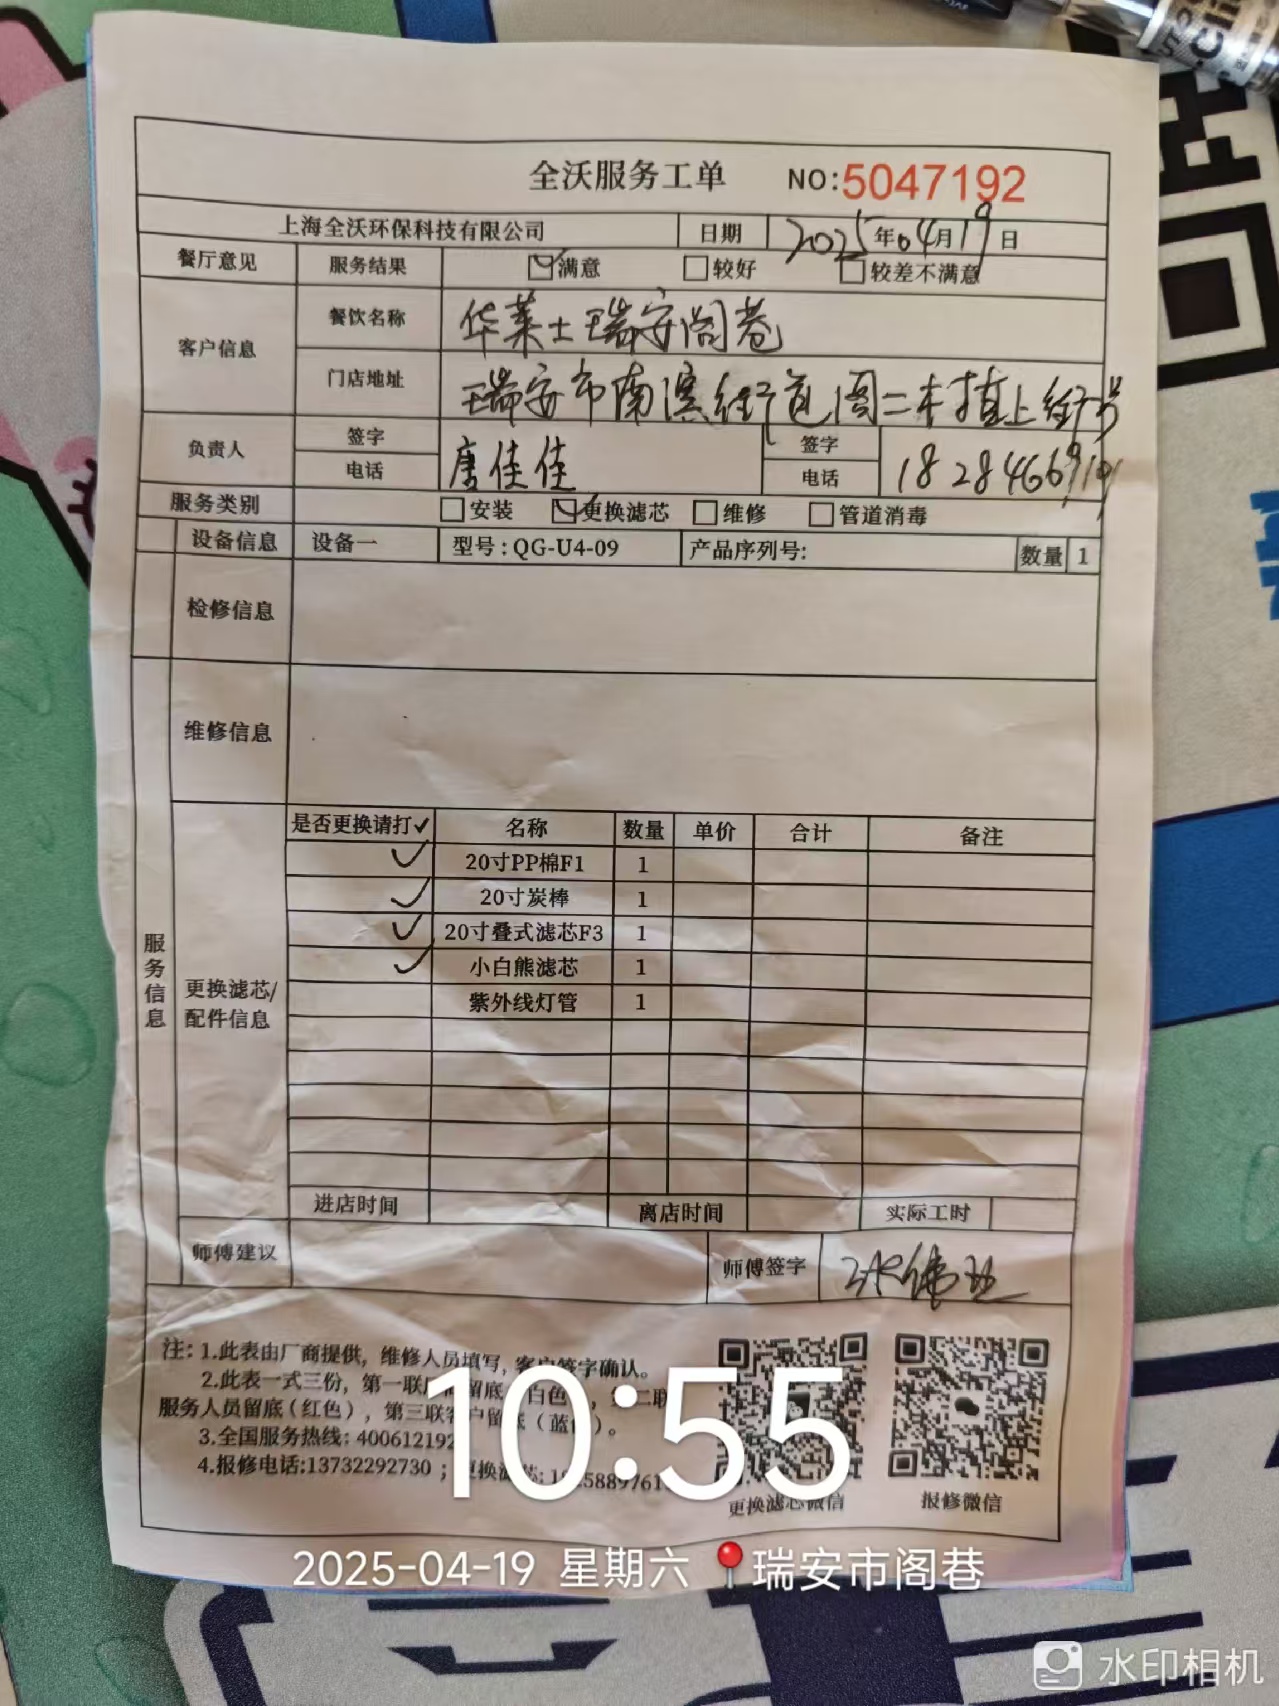 全沃服务工单 NO:5047192
上海全沃环保科技有限公司 日期 2025年04月19日
餐厅意见 服务结果 满意 较好 较差不满意
客户信息 餐饮名称 华莱士瑞安阁巷
门店地址 瑞安市南滨街道阁二村
负责人 签字 唐佳佳 签字
电话 电话
服务类别 安装 更换滤芯 维修 管道消毒
设备信息 设备一 型号:QG-U4-09 产品序列号: 数量 1
检修信息
维修信息
服务信息
更换滤芯/
配件信息
是否更换请打✓ 名称 数量 单价 合计 备注
✓ 20寸PP棉F1 1
✓ 20寸炭棒 1
✓ 20寸叠式滤芯F3 1
✓ 小白熊滤芯 1
紫外线灯管 1
进店时间 离店时间 实际工时
师傅建议 师傅签字
注: 1.此表由厂商提供，维修人员填写，客户签字确认。
2.此表一式三份，第一联 留底 白色 ，第二联
服务人员留底(红色)，第三联客户留底(蓝色)。
3.全国服务热线: 400612192
4.报修电话:13732292730 ; 更换滤芯:
更换滤芯微信 报修微信
10:55
2025-04-19 星期六 瑞安市阁巷
水印相机